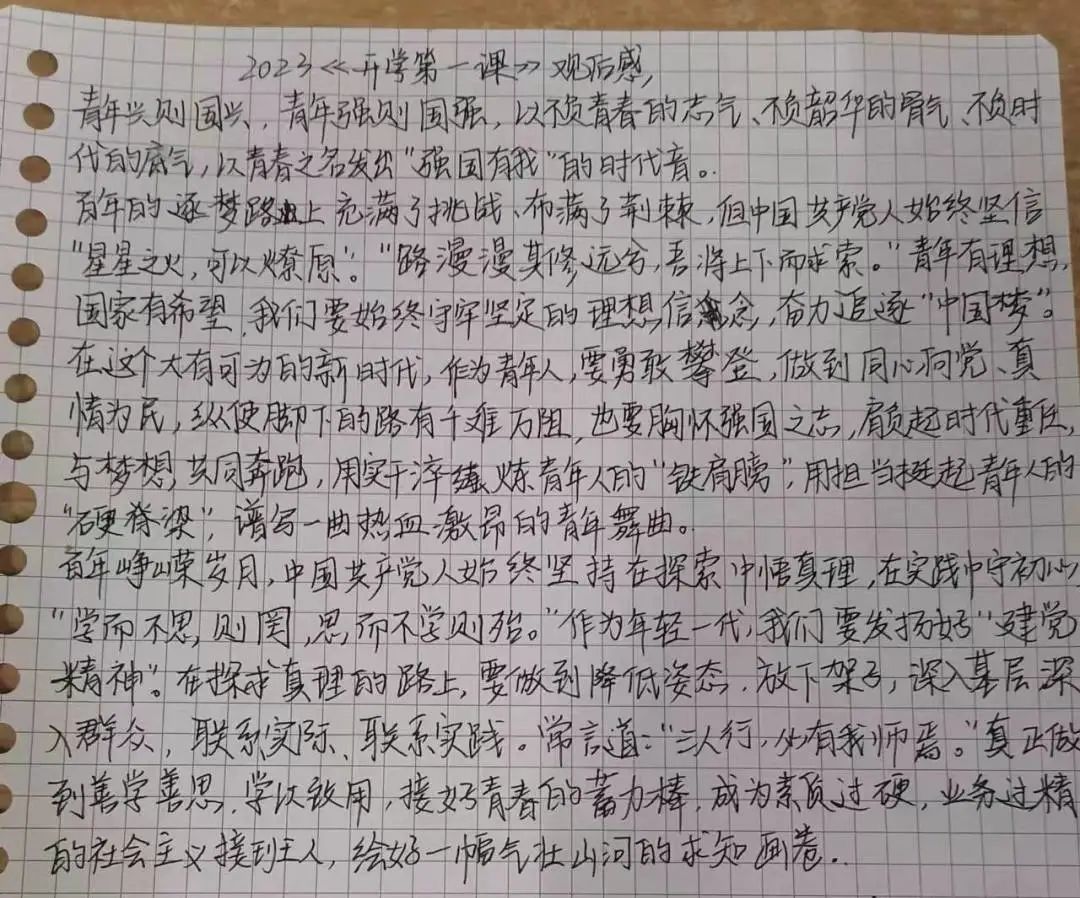 2023《开学第一课》观后感,
青年兴则国兴,青年强则国强,以不负青春的志气、不负韶华的骨气、不负时
代的底气,以青春之名发出"强国有我"的时代音。
百年的逐梦路上充满了挑战、布满了荆棘,但中国共产党人始终坚信
"星星之火,可以燎原"。"路漫漫其修远兮,吾将上下而求索。"青年有理想,
国家有希望,我们要始终守牢坚定的理想信念,奋力追逐"中国梦"。
在这个大有可为的新时代,作为青年人,要勇敢攀登,做到同心向党、真
情为民,纵使脚下的路有千难万阻,也要胸怀强国之志,肩负起时代重任,
与梦想共同奔跑,用实干淬炼青年人的"铁肩膀",用担当挺起青年人的
"硬脊梁",谱写一曲热血激昂的青年舞曲。
百年峥嵘岁月,中国共产党人始终坚持在探索中悟真理,在实践中守初心
"学而不思则罔,思而不学则殆。"作为年轻一代,我们要发扬好"建党
精神"。在探求真理的路上,要做到降低姿态,放下架子,深入基层深
入群众,联系实际、联系实践。常言道:"三人行,必有我师焉。"真正做
到善学善思,学以致用,接好青春的蓄力棒,成为素质过硬,业务过精
的社会主义接到主人,绘好一幅气壮山河的求知画卷.